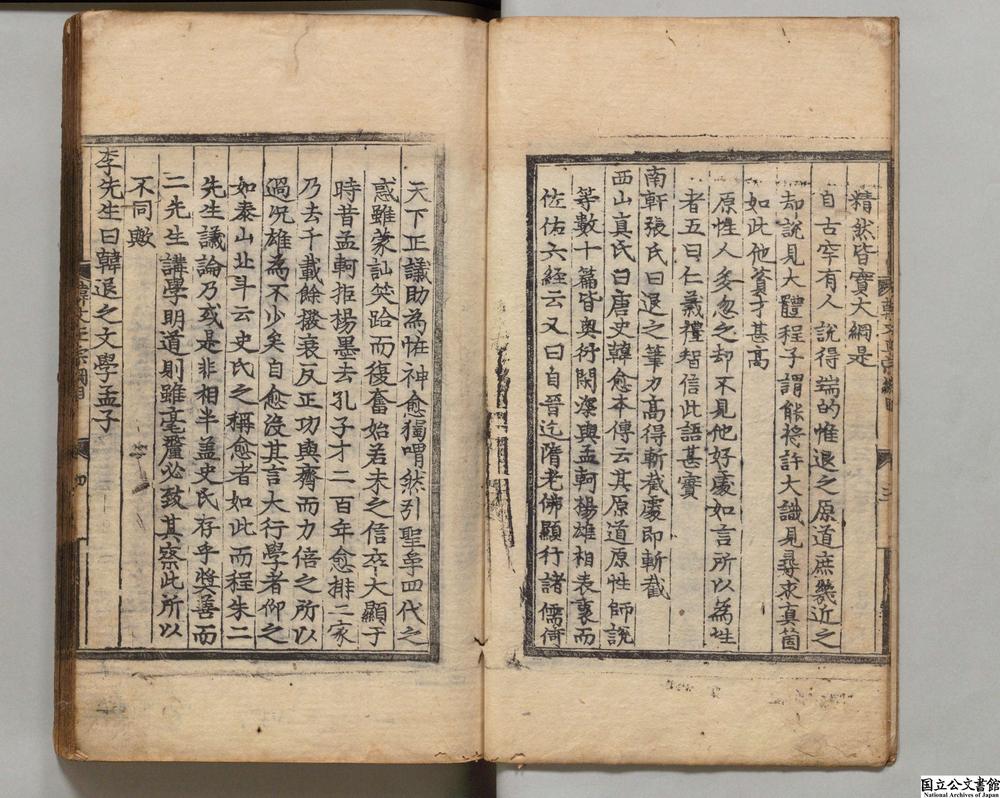 精然皆實大綱是
自古罕有人說得端的惟退之原道庶幾近之
却說見大體程子謂能將許大識見尋求真箇
如此他資才甚高
原性人多忽之却不見他好處如言所以為性
者五曰仁義禮智信此語甚實
南軒張氏曰退之筆力高得斬截處即斬截
西山真氏曰唐史韓愈本傳云其原道原性師說
等數十篇皆奧衍閎深與孟軻楊雄相表裏而
佐佑六經云又曰自晉迄隋老佛顯行諸儒倚
天下正議助為怪神愈獨喟然引聖爭四代之
惑雖蒙訕笑跲而復奮始若未之信卒大顯于
時昔孟軻拒楊墨去孔子才二百年愈排二家
乃去千載餘撥衰反正功與齊而力倍之所以
過況雄為不少矣自愈沒其言大行學者仰之
如泰山北斗云史氏之稱愈者如此而程朱二
先生議論乃或是非相半盖史氏存乎奬善而
二先生講學明道則雖毫釐必致其察此所以
不同歟
李先生曰韓退之文學孟子
四
国立公文書館
National Archives of Japan